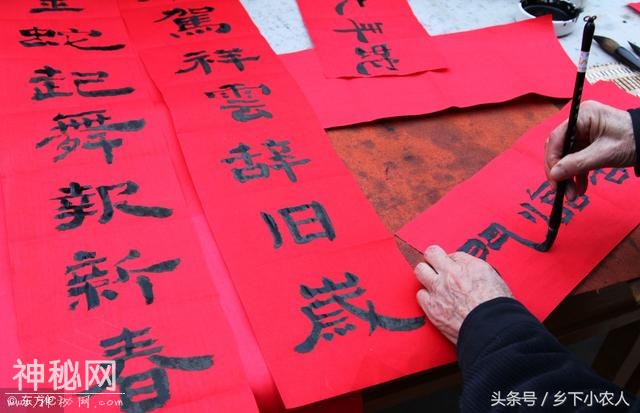 金蛇起舞報新春
駕祥雲辭旧歲
蛇
臨門
神秘网
东方IC
头条号 / 乡下小农人